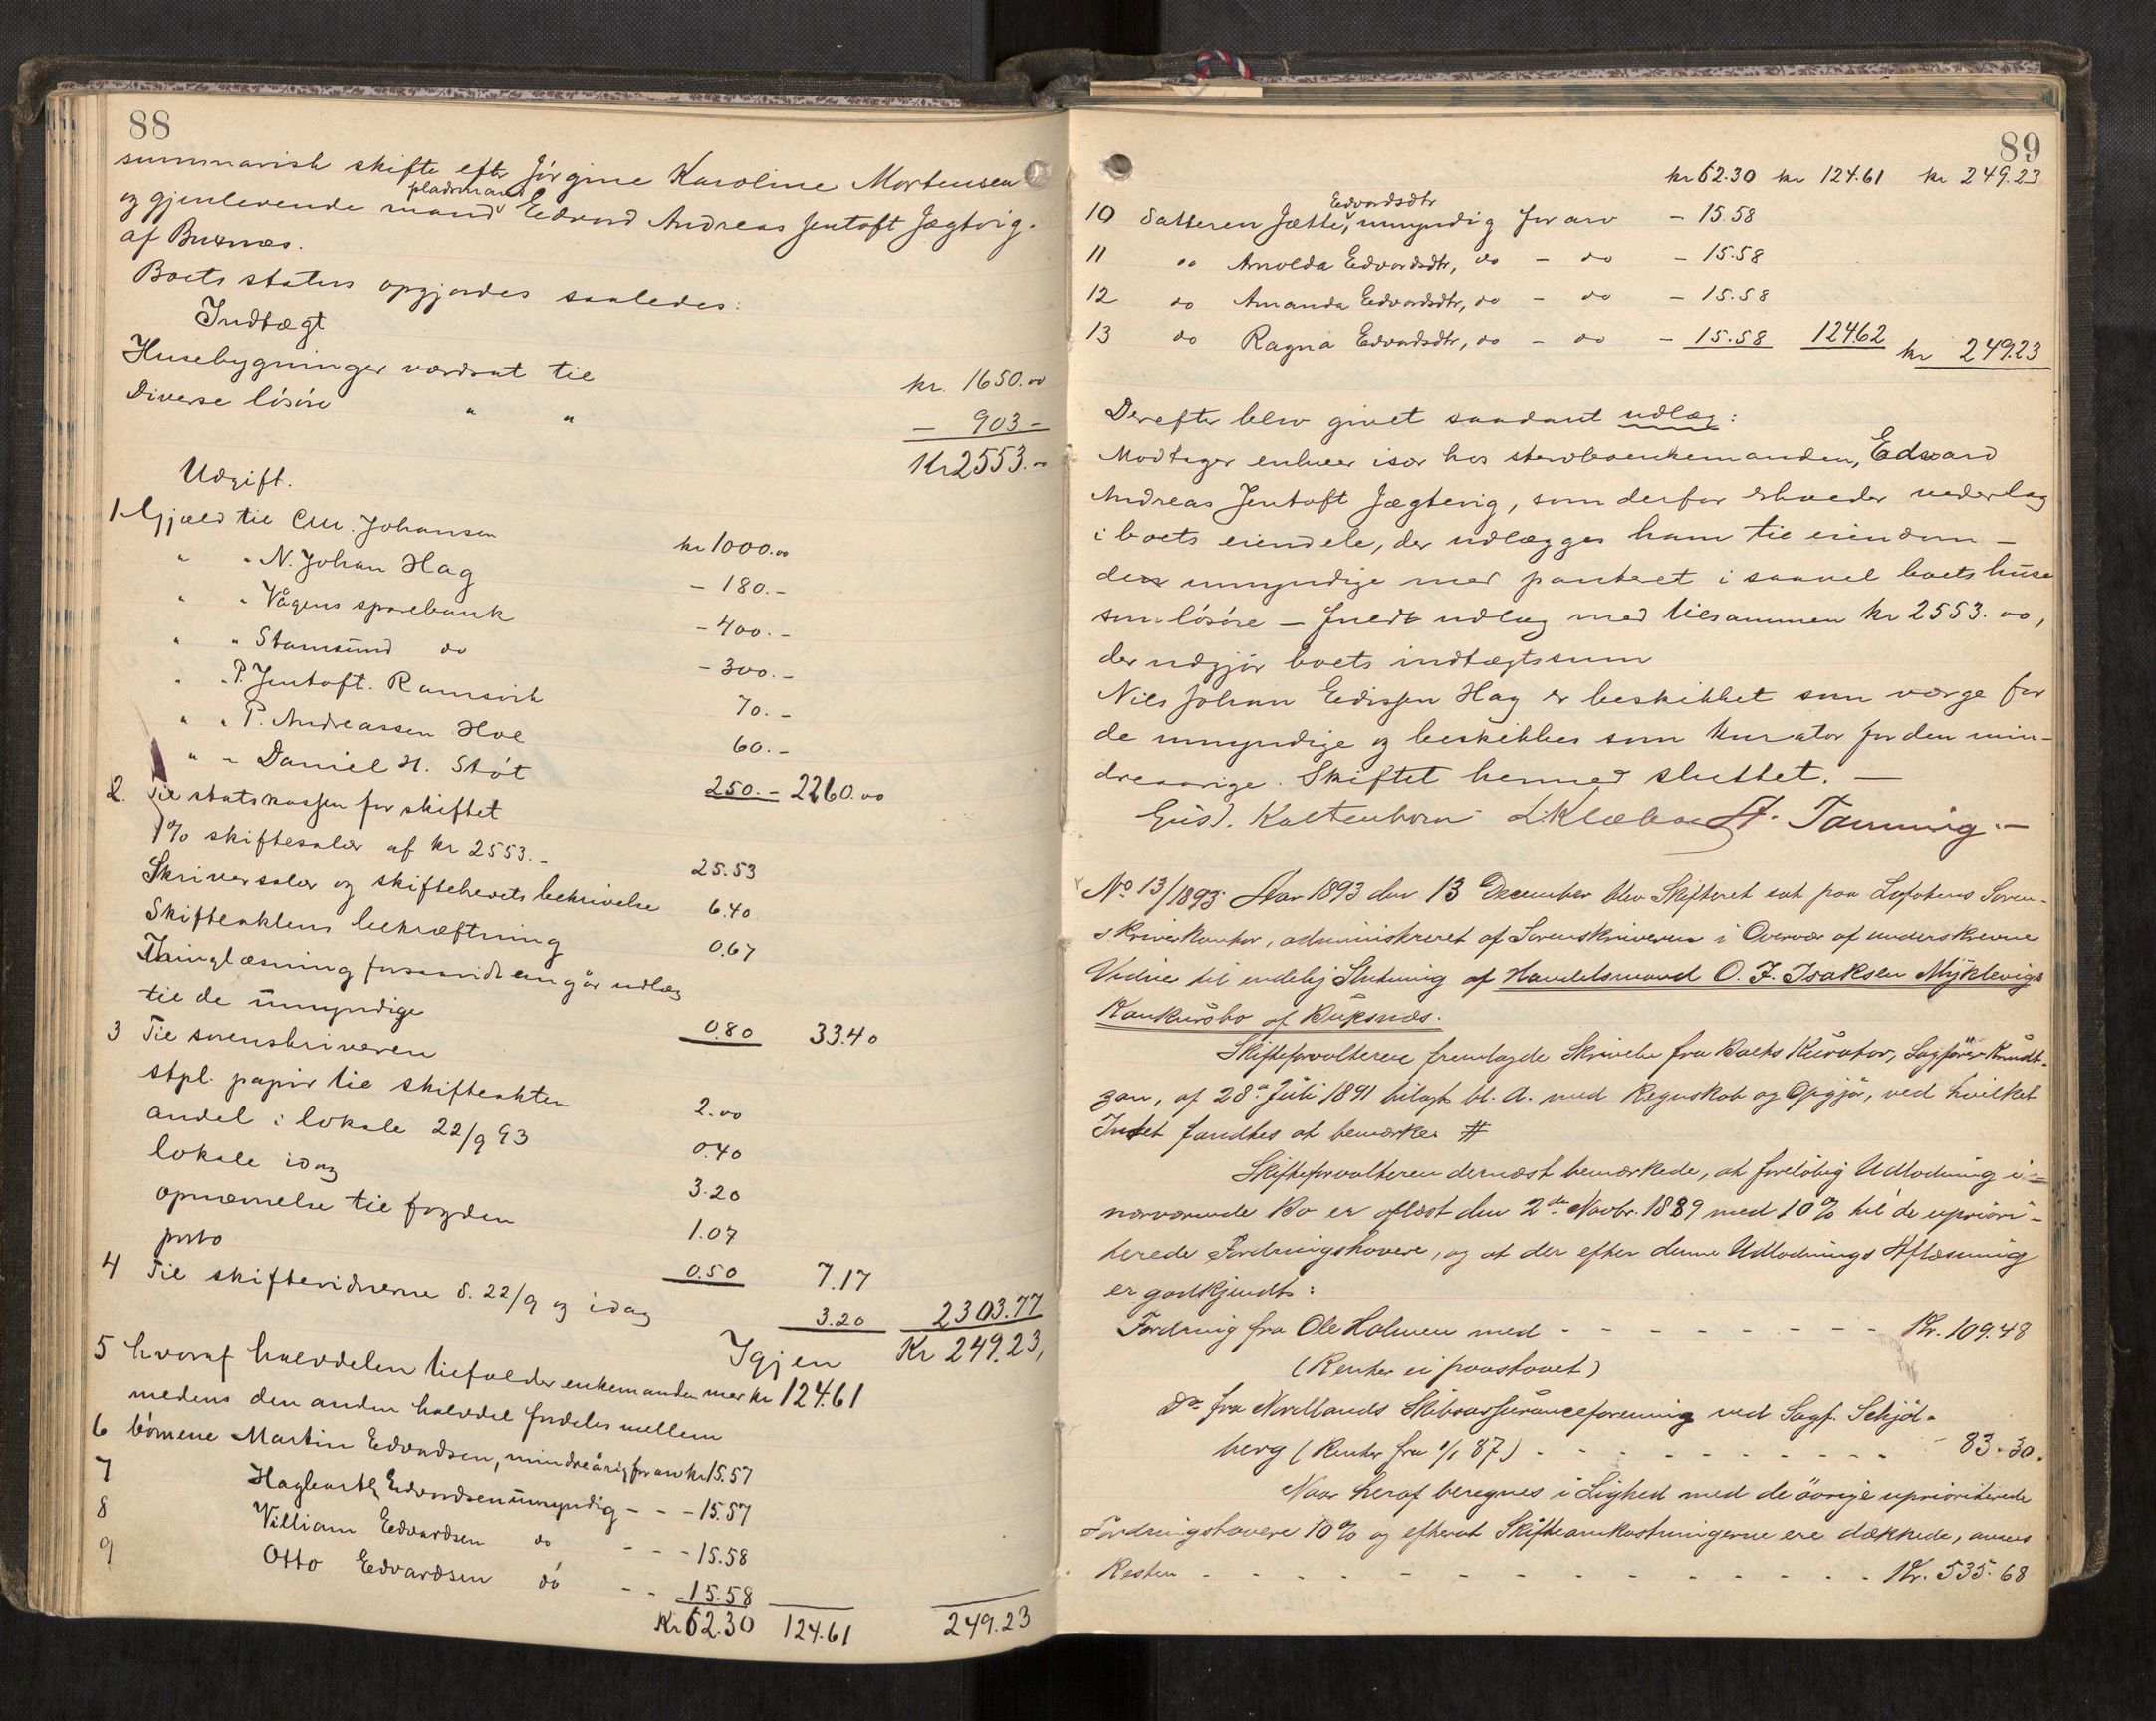 88
summarisk skifte efter Jørgine Karoline Mortensen
og gjenlevende pladsmand mand Edvard Andreas Jentoft Jægtvig.
af Buxnæs.
Boets status opgjordes saaledes:
Indtægt
Husebygninger værdsat til kr. 1650.00
Diverse løsøre " " - 903 -
Kr 2553.00
Udgift.
1 Gjæld til Chr. Johansen kr 1000.00
" " N. Johan Hag - 180.-
" " Vågens sparebank - 400.-
" " Stamsund do - 300.-
" " P. Jentoft. Ramsvik 70.-
" " P. Andreassen Hol 60.-
" " Daniel H. Støt 250.- 2260.00
2. Til statskassen for skiftet
1% skiftesalær af kr 2553.- 25.53
Skriversalær og skiftebrevets beskrivelse 6.40
Skifteaktens bekræftning 0.67
Thinglæsning forsaavidt angår udlæg
til de umyndige 0.80 33.40
3 Til sorenskriveren
stpl. papir til skifteakten 2.00
andel i lokale 22/9 93 0.40
lokale idag 3.20
opnævnelse til fogden 1.07
porto 0.50 7.17
4 Til skiftevidnerne d. 22/9 og idag 3.20 2303.77
Igjen Kr 249.23,
5 hvoraf halvdelen tilfalder enkemanden med kr 124.61
medens den anden halvdel fordeles mellem
6 børnene Martin Edvardsen, mindreårig for arv kr 15.57
7 Hagbarth Edvardsen umyndig - - - 15.57
8 Villiam Edvardsen do - - - 15.58
9 Otto Edvardsen do - - 15.58
Kr 62.30 124.61 249.23
89
kr 62.30 kr 124.61 kr 249.23
10 Datteren Jætte Edvardsdtr, umyndig for arv - 15.58
11 do Arnolda Edvardsdtr, do - do - 15.58
12 do Amanda Edvardsdtr, do - do - 15.58
13 do Ragna Edvardsdtr, do - do - 15.58 124.62 kr 249.23
Derefter blev givet saadant udlæg:
Modtager enhver især hos sterbboenkemanden, Edvard
Andreas Jentoft Jægtvig, som derfor erholder vederlag
i boets eiendele, der udlægges ham til eiendom -
de umyndige med panteret i saavel boets huse
som løsøre - fuldt udlæg med tilsammen kr 2553.00,
der udgjør boets indtægtssum
Nils Johan Edissen Hag er beskikket som værge for
de umyndige og beskikkes som kurator for den min-
dreaarige. Skiftet hermed sluttet. -
Gust. Kaltenborn L. Klæboe H. Tanning. -
No 13/1893. Aar 1893 den 13 December blev Skifteret sat paa Lofotens Soren-
skriverkontor, administreret af Sorenskriveren i Overvær af underskrevne
Vidner til endelig Slutning af Handelsmand O. J. Isaksen Myklevigs
Konkursbo af Buksnæs.
Skifteforvalteren fremlagde Skrivelse fra Boets Kurator, Sagfører Knudt-
zon, af 28de Juli 1891 bilagt bl. A. med Regnskab og Opgjør, ved hvilket
Intet fandtes at bemærke #
Skifteforvalteren dernæst bemærkede, at foreløbig Udlodning i
nærværende Bo er aflæst den 2den Novbr. 1889 med 10% til de upriori-
terede Fordringshavere, og at der efter denne Udlodnings Aflæsning
er godkjendt:
Fordring fra Ole Holmen med - - - - - - - - - Kr. 109.48
(Renter ei paastaaet)
Do. fra Nordlands Skibsassuranceforening ved Sagf. Schjøl-
berg (Renter fra 1/1 87) - - - - - - - - - - 83.30.
Naar heraf beregnes i Lighed med de øvrige uprioriterede
Fordringshavere 10% og efterat Skifteomkostningerne ere dækkede, anses
Resten - - - - - - - - - - - - - Kr. 535.68